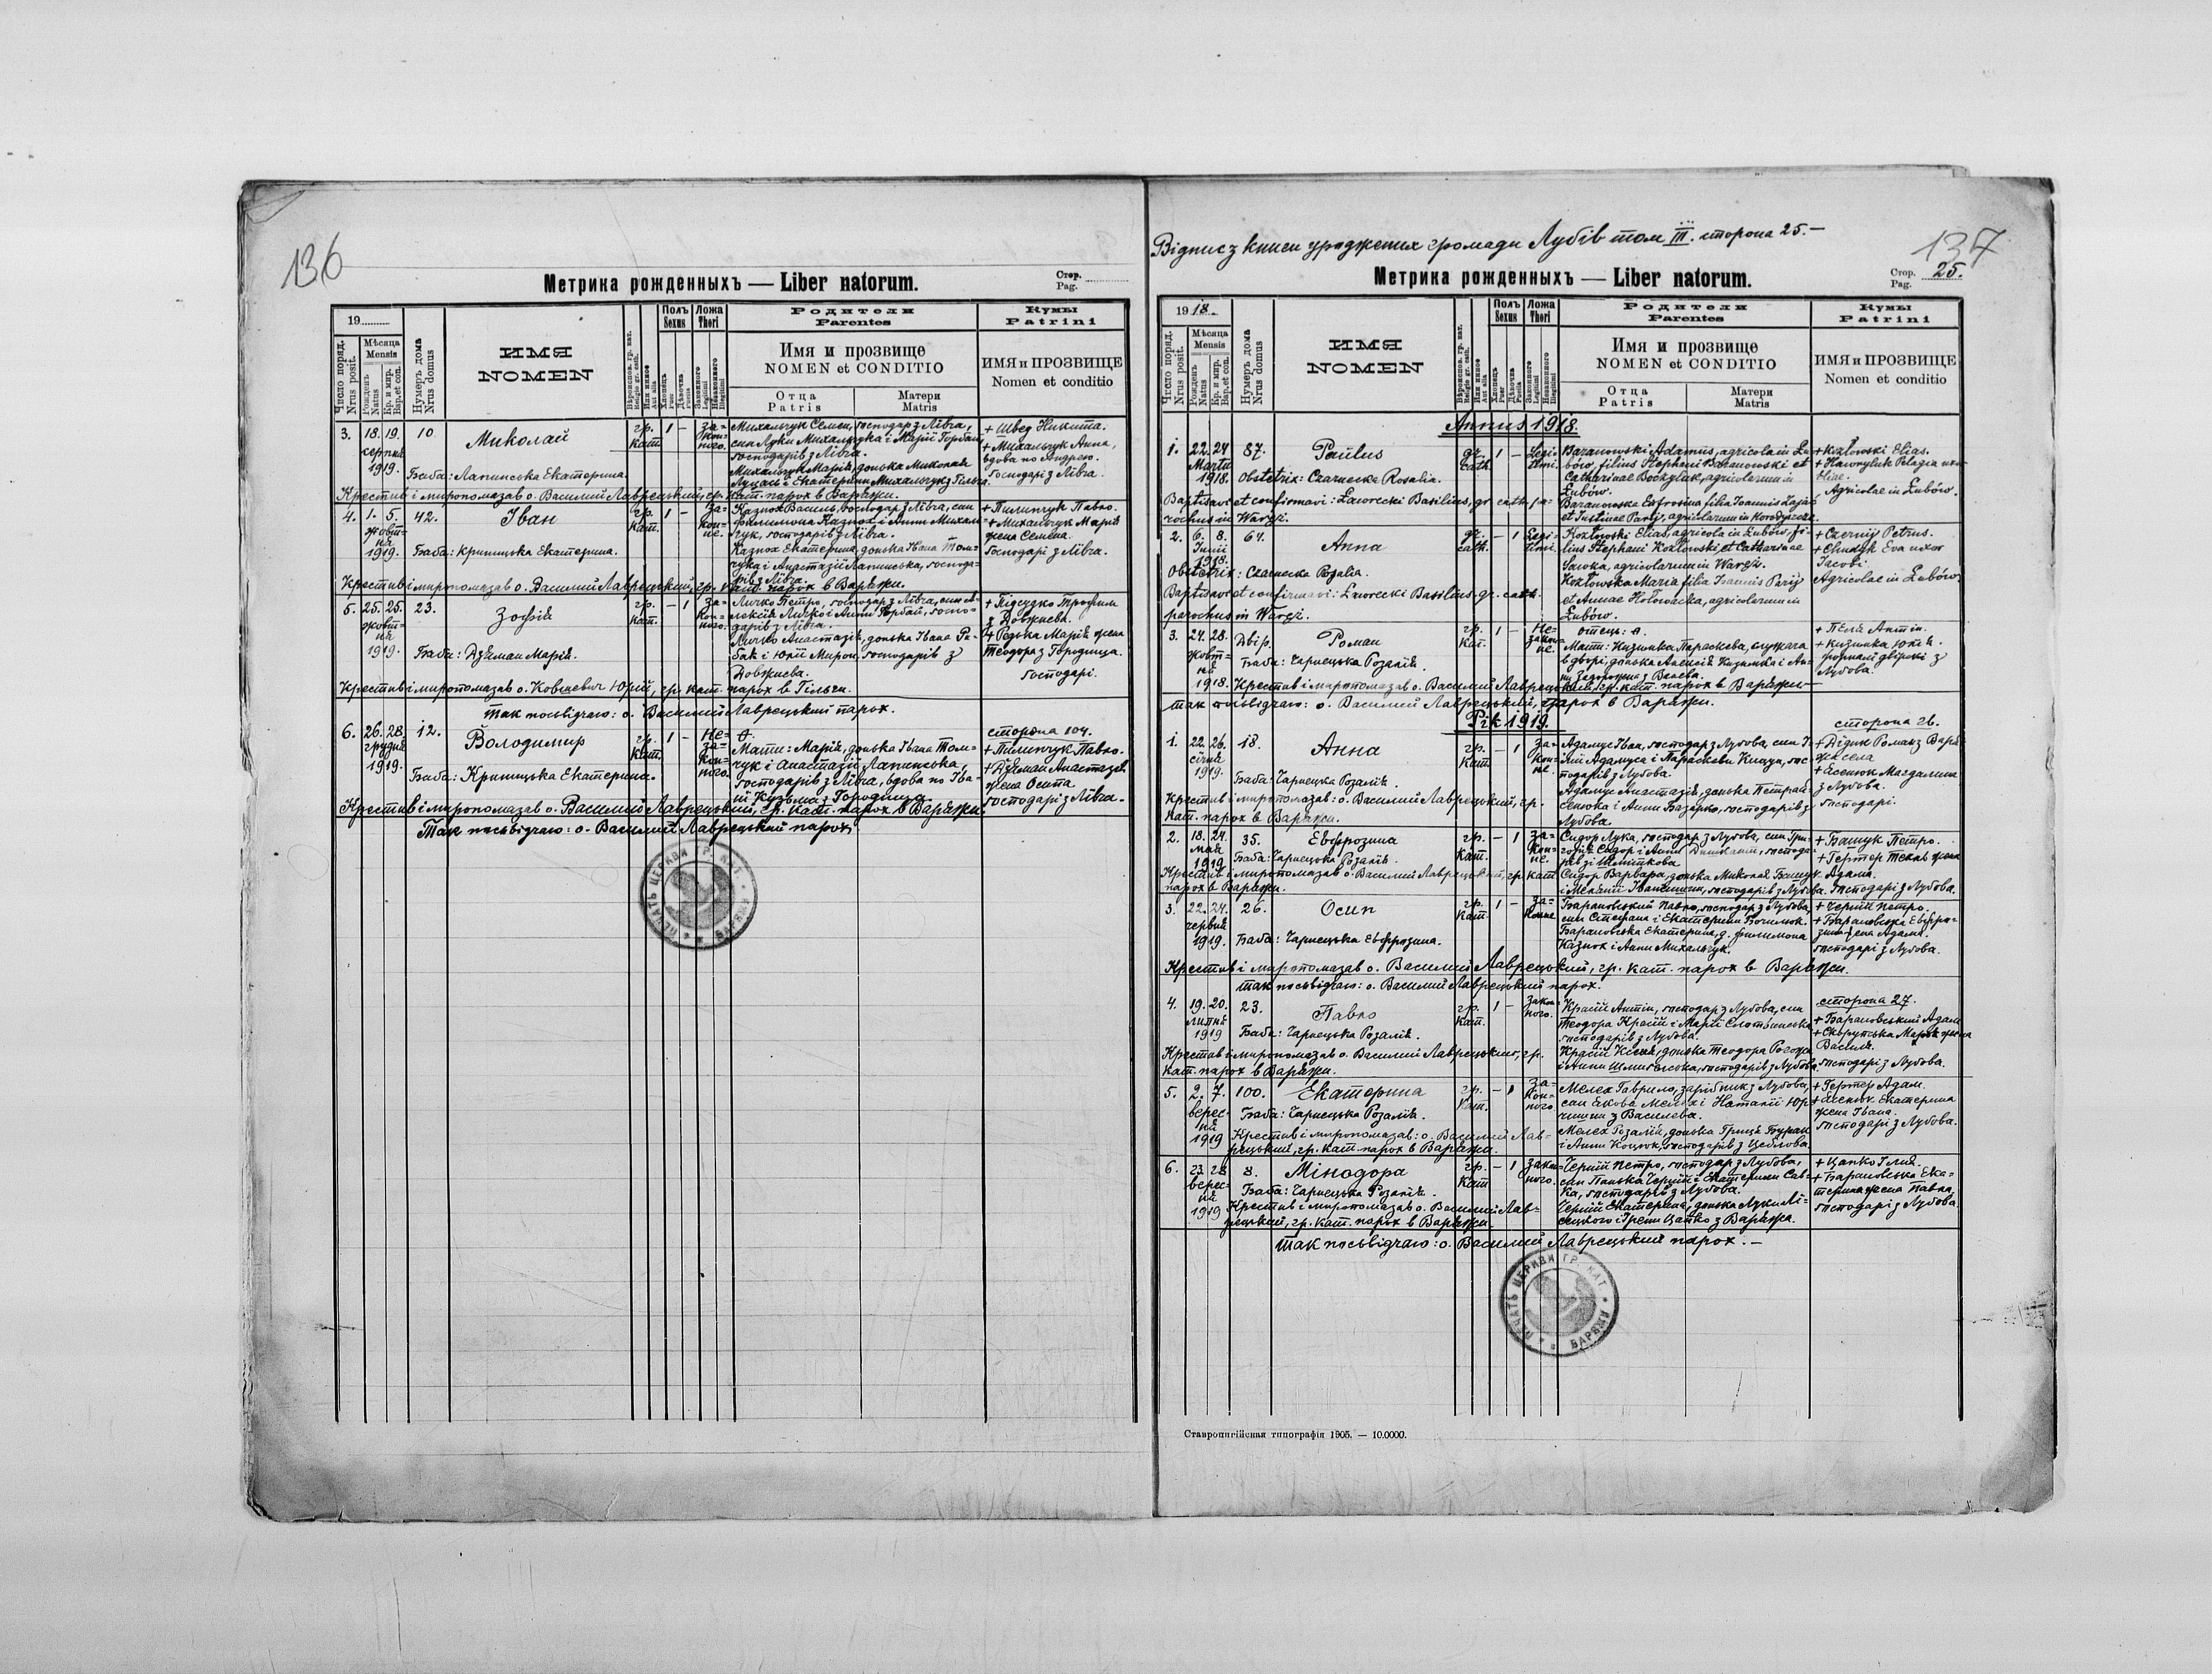 136
Метрика рожденныхъ — Liber natorum.
Стор.
Pag.
19
Число поряд.
Nrus posit.
Мѣсяца
Mensis
Рождень
Natus
Кр. и мир.
Bap. et con.
Нумеръ дома
Nrus domus
ИМЯ
NOMEN
Полъ
Sexus
Ложа
Thori
Родители
Parentes
Имя и прозвище
NOMEN et CONDITIO
Отца
Patris
Матери
Matris
Кумы
Patrini
ИМЯ и ПРОЗВИЩЕ
Nomen et conditio
3. 18. 19. серпня 1919. 10 Миколай гр. кат. 1 — за-кон-ного.
Михальчук Семен, господар з Лівча,
син Луки Михальчука і Марії Горбай,
господарів з Лівча.
Михальчук Марія, донька Миколая
Луцась і Екатерини Михальчук з Гільча.
+ Швед Никита.
+ Михальчук Анна,
вдова по Андрею.
Господарі з Лівча.
Баба: Лапинська Екатерина.
Крестив і миропомазав о. Василий Лаврецький, гр. кат. парох в Варяжи.
4. 1. 5. жовтня 1919. 42. Іван гр. кат. 1 — За-кон-не.
Казнох Василь, господар з Лівча, син
Филимона Казнох і Анни Михаль-
чук, господарів з Лівча.
Казнох Екатерина, донька Івана Том-
чука і Анастазії Лапинська, господа-
рів з Лівча.
+ Пилипчук Павло.
+ Михальчук Марія
жена Семена.
Господарі з Лівча.
Баба: Криницька Екатерина.
Крестив і миропомазав о. Василий Лаврецький, гр. кат. парох в Варяжи.
5. 25. 25. жовтня 1919. 23. Зофія гр. кат. — 1 за-кон-ного.
Личко Петро, господар з Лівча, син
Личко і Анни Горбай, госпо-
дарів з Лівча.
Личко Анастазія, донька Івана Ри-
бак і Юлії Мирон, господарів з
Довжнева.
+ Підсудко Трофим
з Довжнева.
+ Редька Марія жена
Теодора з Городища.
Господарі.
Баба: Дзяман Марія.
Крестив і миропомазав о. Ковшевич Юрій, гр. кат. парох в Гільчи.
Так посьвідчаю: о. Василий Лаврецький парох.
6. 26. 28. грудня 1919. 12. Володимир гр. кат. 1 — Не-за-кон-ного.
Мати: Марія, донька Івана Том-
чук і Анастазії Лапинська,
господарів з Лівча, вдова по Іва-
ні Кузьма з Городища.
сторона 104.
+ Пилипчук Павло.
+ Дзяман Анастазія
жена Осипа
господарі з Лівча.
Баба: Криницька Екатерина.
Крестив і миропомазав о. Василий Лаврецький, гр. кат. парох в Варяжи.
Так посьвідчаю: о. Василий Лаврецький парох.
ПЕЧАТЬ ЦЕРКВИ ГР. КАТ. ВАРЯЖИ
Відпис з книги уроджених громади Лубів том III. сторона 25.—
137
Метрика рожденныхъ — Liber natorum.
Стор.
Pag. 25.
1918.
Число поряд.
Nrus posit.
Мѣсяца
Mensis
Рождень
Natus
Кр. и мир.
Bap. et con.
Нумеръ дома
Nrus domus
ИМЯ
NOMEN
Полъ
Sexus
Ложа
Thori
Родители
Parentes
Имя и прозвище
NOMEN et CONDITIO
Отца
Patris
Матери
Matris
Кумы
Patrini
ИМЯ и ПРОЗВИЩЕ
Nomen et conditio
Annus 1918.
1. 22. 24 Martii 1918. 87. Paulus gr. cath. 1 — Legi-timi.
Baranowski Adamus, agricola in Łu-
bów, filius Stephani Baranowski et
Catharinae Boczylak, agricolarum in
Łubów.
Baranowska Eufrosina filia Ioannis Zając
et Justinae Paryj, agricolarum in Horodyszcze.
+ Kozłowski Elias.
+ Hawryluk Pelagia uxor
Eliae.
Agricolae in Łubów.
Obstetrix: Czarnecka Rosalia.
Baptisavi et confirmavi: Ławrecki Basilius, gr. cath. pa-
rochus in Waręż.
2. 6. 8. Junii 1918. 64. Anna gr. cath. — 1 Legi-timi.
Kozłowski Elias, agricola in Łubów, fi-
lius Stephani Kozłowski et Catharinae
Saroka, agricolarum in Waręż.
Kozłowska Maria filia Ioannis Paryj
et Annae Hołowacka, agricolarum in
Łubów.
+ Czernij Petrus.
+ Chudyk Eva uxor
Jacobi.
Agricolae in Łubów.
Obstetrix: Czarnecka Rozalia.
Baptisavi et confirmavi: Ławrecki Basilius gr. cath.
parochus in Waręż.
3. 24. 28. жовтня 1918. Двір. Роман гр. кат. 1 — Не-закон-не.
Отець:
Мати: Кизимка Параскева, служача
в дворі, донька Алексія Кизимка і Ан-
ни Задорожна з Ваньва.
+ Пеля Антін.
+ Кизимка Юлія.
форналі двірскі з
Лубова.
Баба: Чарнецька Розалія.
Крестив і миропомазав о. Василий Лаврецький, гр. кат. парох в Варяжи —
так посьвідчаю: о. Василий Лаврецький, парох в Варяжи.
Рік 1919.
сторона 26.
1. 22. 26. січня 1919. 18. Анна гр. кат. — 1 за-кон-не.
Адамус Іван, господар з Лубова, син І-
лії Адамуса і Параскеви Клауз, гос-
подарів з Лубова.
Адамус Анастазія, донька Петра Я-
сенюка і Анни Базарко, господарів з
Лубова.
+ Дідик Роман з Варя-
жа села
+ Ясенюк Магдалина
з Лубова.
Господарі.
Баба: Чарнецка Розалія.
Крестив і миропомазав: о. Василий Лаврецький, гр.
кат. парох в Варяжи.
2. 18. 24. мая 1919 35. Евфрозина гр. кат. — 1 за-кон-не.
Сидор Лука, господар з Лубова, син Гри-
горія Сидор і Анни, господа-
рів зі Шміткова.
Сидор Варвара, донька Миколая Башук
і Меланії Іванишин, господарів з Лубова.
+ Башук Петро.
+ Гертер Текля жена
Адама.
Господарі з Лубова.
Баба: Чарнецька Розалія.
Крестив і миропомазав о. Василий Лаврецький, гр. кат.
парох в Варяжи.
3. 22. 24. червня 1919. 26. Осип гр. кат. 1 — за-конне.
Барановський Павло, господар з Лубова,
син Стефана і Екатерини Бочилюк.
Барановська Екатерина, д. Филимона
Казнох і Анни Михальчук.
+ Черній Петро.
+ Барановська Евфро-
зина жена Адама.
господарі з Лубова.
Баба: Чарнецька Евфрозина.
Крестив і миропомазав о. Василий Лаврецький, гр. кат. парох в Варяжи.
так посьвідчаю: о. Василий Лаврецький парох.
сторона 27.
4. 19. 20. липня 1919 23. Павло гр. кат. 1 — закон-ного.
Красій Антін, господар з Лубова, син
Теодора Красій і Марії Слотвинська
господарів з Лубова.
Красій Ксеня, донька Теодора Рогожа
і Анни Шмигельска, господарів з Лубова.
+ Барановський Адам
+ Скврутська Марія жена
Василя.
господарі з Лубова.
Баба: Чарнецька Розалія.
Крестив і миропомазав о. Василий Лаврецький, гр.
кат. парох в Варяжи.
5. 2. 7. вересня 1919 100. Екатерина гр. кат. — 1 За-кон-ного.
Мелех Гаврило, зарібник з Лубова,
син Якова Мелех і Наталії Юр-
чишин з Василева.
Мелех Розалія, донька Гриця Бурак
і Анни Коцюк, господарів з Цеблова.
+ Гертер Адам.
+ Ясенюк Екатерина
жена Івана.
господарі з Лубова.
Баба: Чарнецька Розалія.
Крестив і миропомазав: о. Василий Лав-
рецький, гр. кат. парох в Варяжи.
6. 23. 28 вересня 1919 8. Мінодора гр. кат — 1 закон-ного.
Черній Петро, господар з Лубова,
син Панька Черній і Екатерини Сав-
ка, господарів з Лубова.
Черній Екатерина, донька Луки Лі-
сецького і Ірени Цапко з Варяжа.
+ Цапко Ілия.
+ Барановська Ека-
терина жена Павла
господарі з Лубова
Баба: Чарнецька Розалія.
Крестив і миропомазав о. Василий Лав-
рецький, гр. кат. парох в Варяжи.
так посьвідчаю: о. Василий Лаврецький парох.—
ПЕЧАТЬ ЦЕРКВИ ГР. КАТ. ВАРЯЖИ
Ставропигійская типографія 1905. — 10.0000.